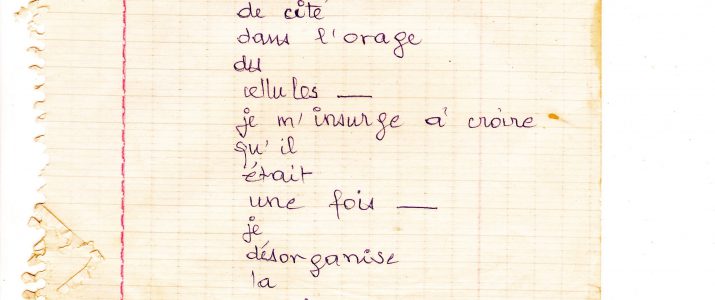 de cité
dans l'orage
des
cellules —
je m'insurge à croire
qu'il
était
une fois —
je
désorganise
la